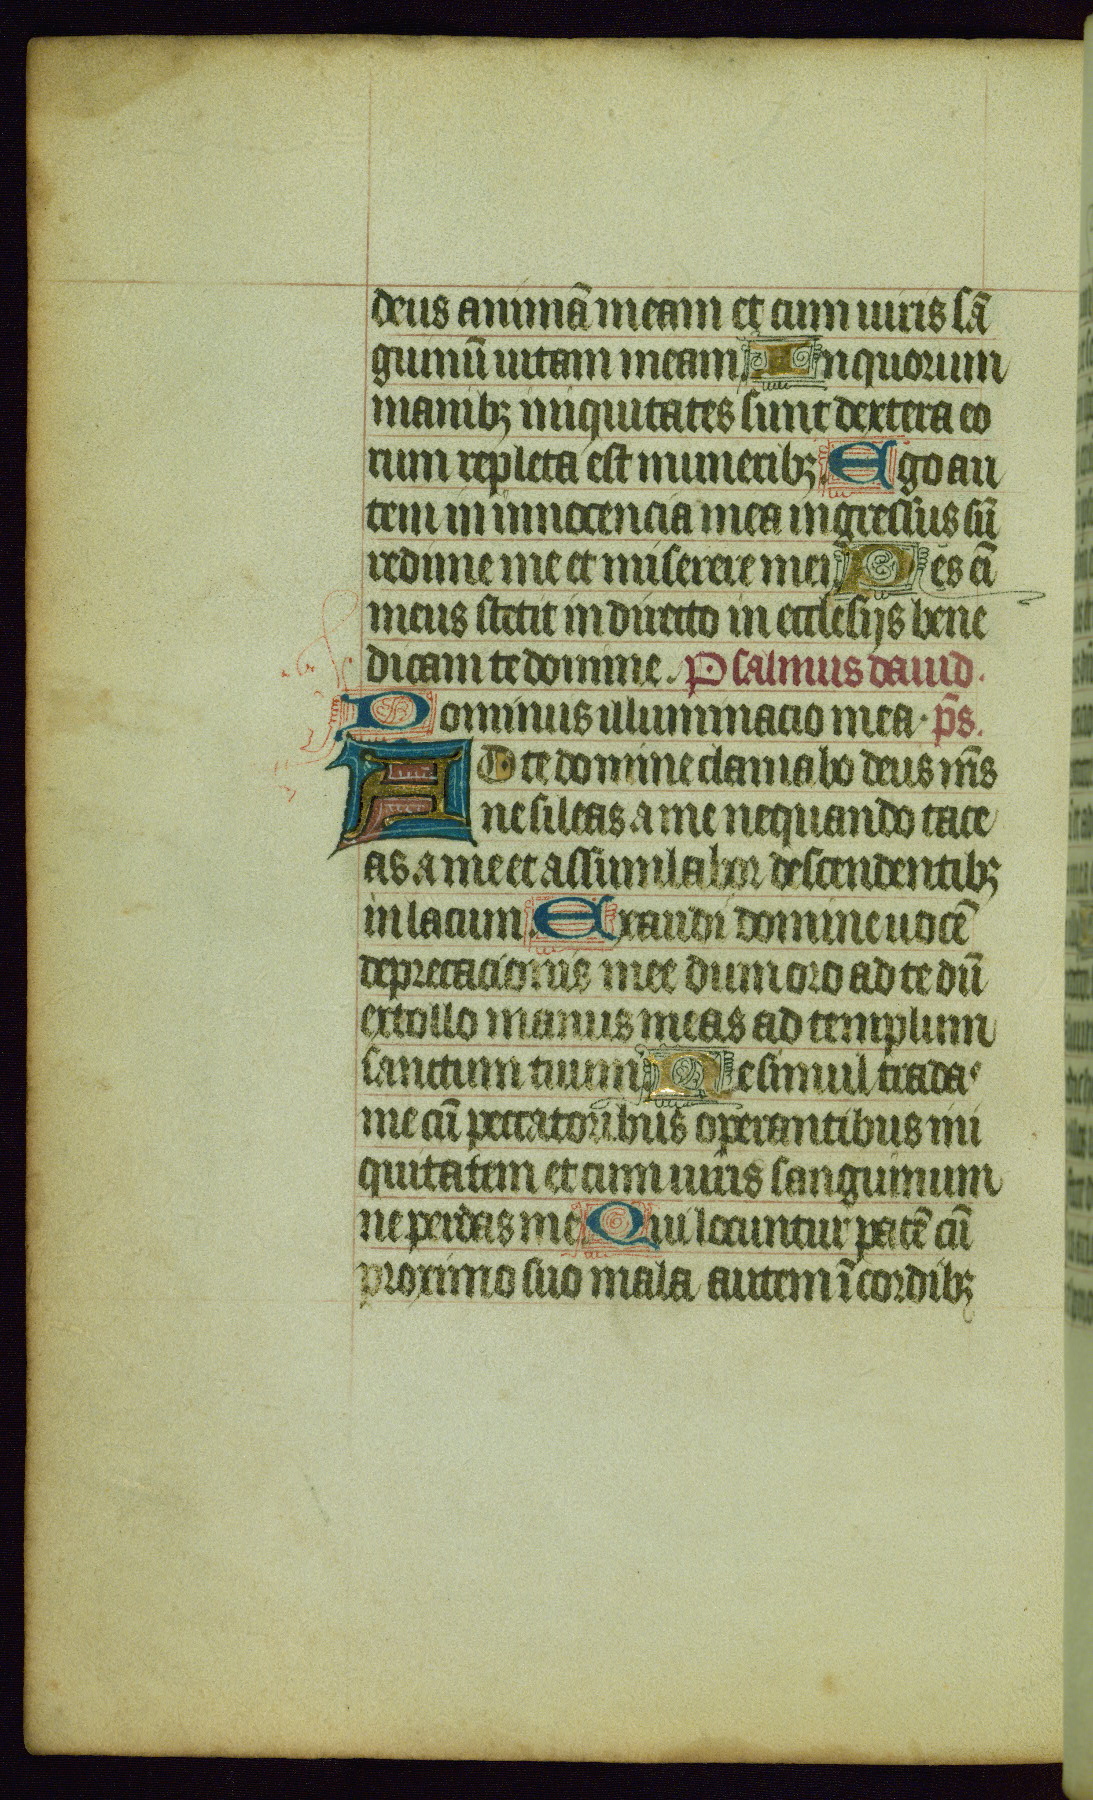 deus animā meam et cum uiris sā
guinū uitam meam. In quorum
manibꝫ iniquitates sunt dextera eo
rum repleta est muneribꝫ. Ego au
tem in innocencia mea ingressus sū
redime me et miserere mei. Pes eī
meus stetit in directo in ecclesijs bene
dicam te domine. Psalmus dauid.
Dominus illuminacio mea. p̄s.
AD te domine clamabo deus m̄s
ne sileas a me nequando tace
as a me et assimilabor descendentibꝫ
in lacum. Exaudi domine uocē
deprecacionis mee dum oro ad te dū
extollo manus meas ad templum
sanctum tuum. Ne simul tradas
me cū peccatoribus operantibus ini
quitatem et cum uiris sanguinum
ne perdas me. Qui locuntur pacē cū
proximo suo mala autem ī cordibꝫ